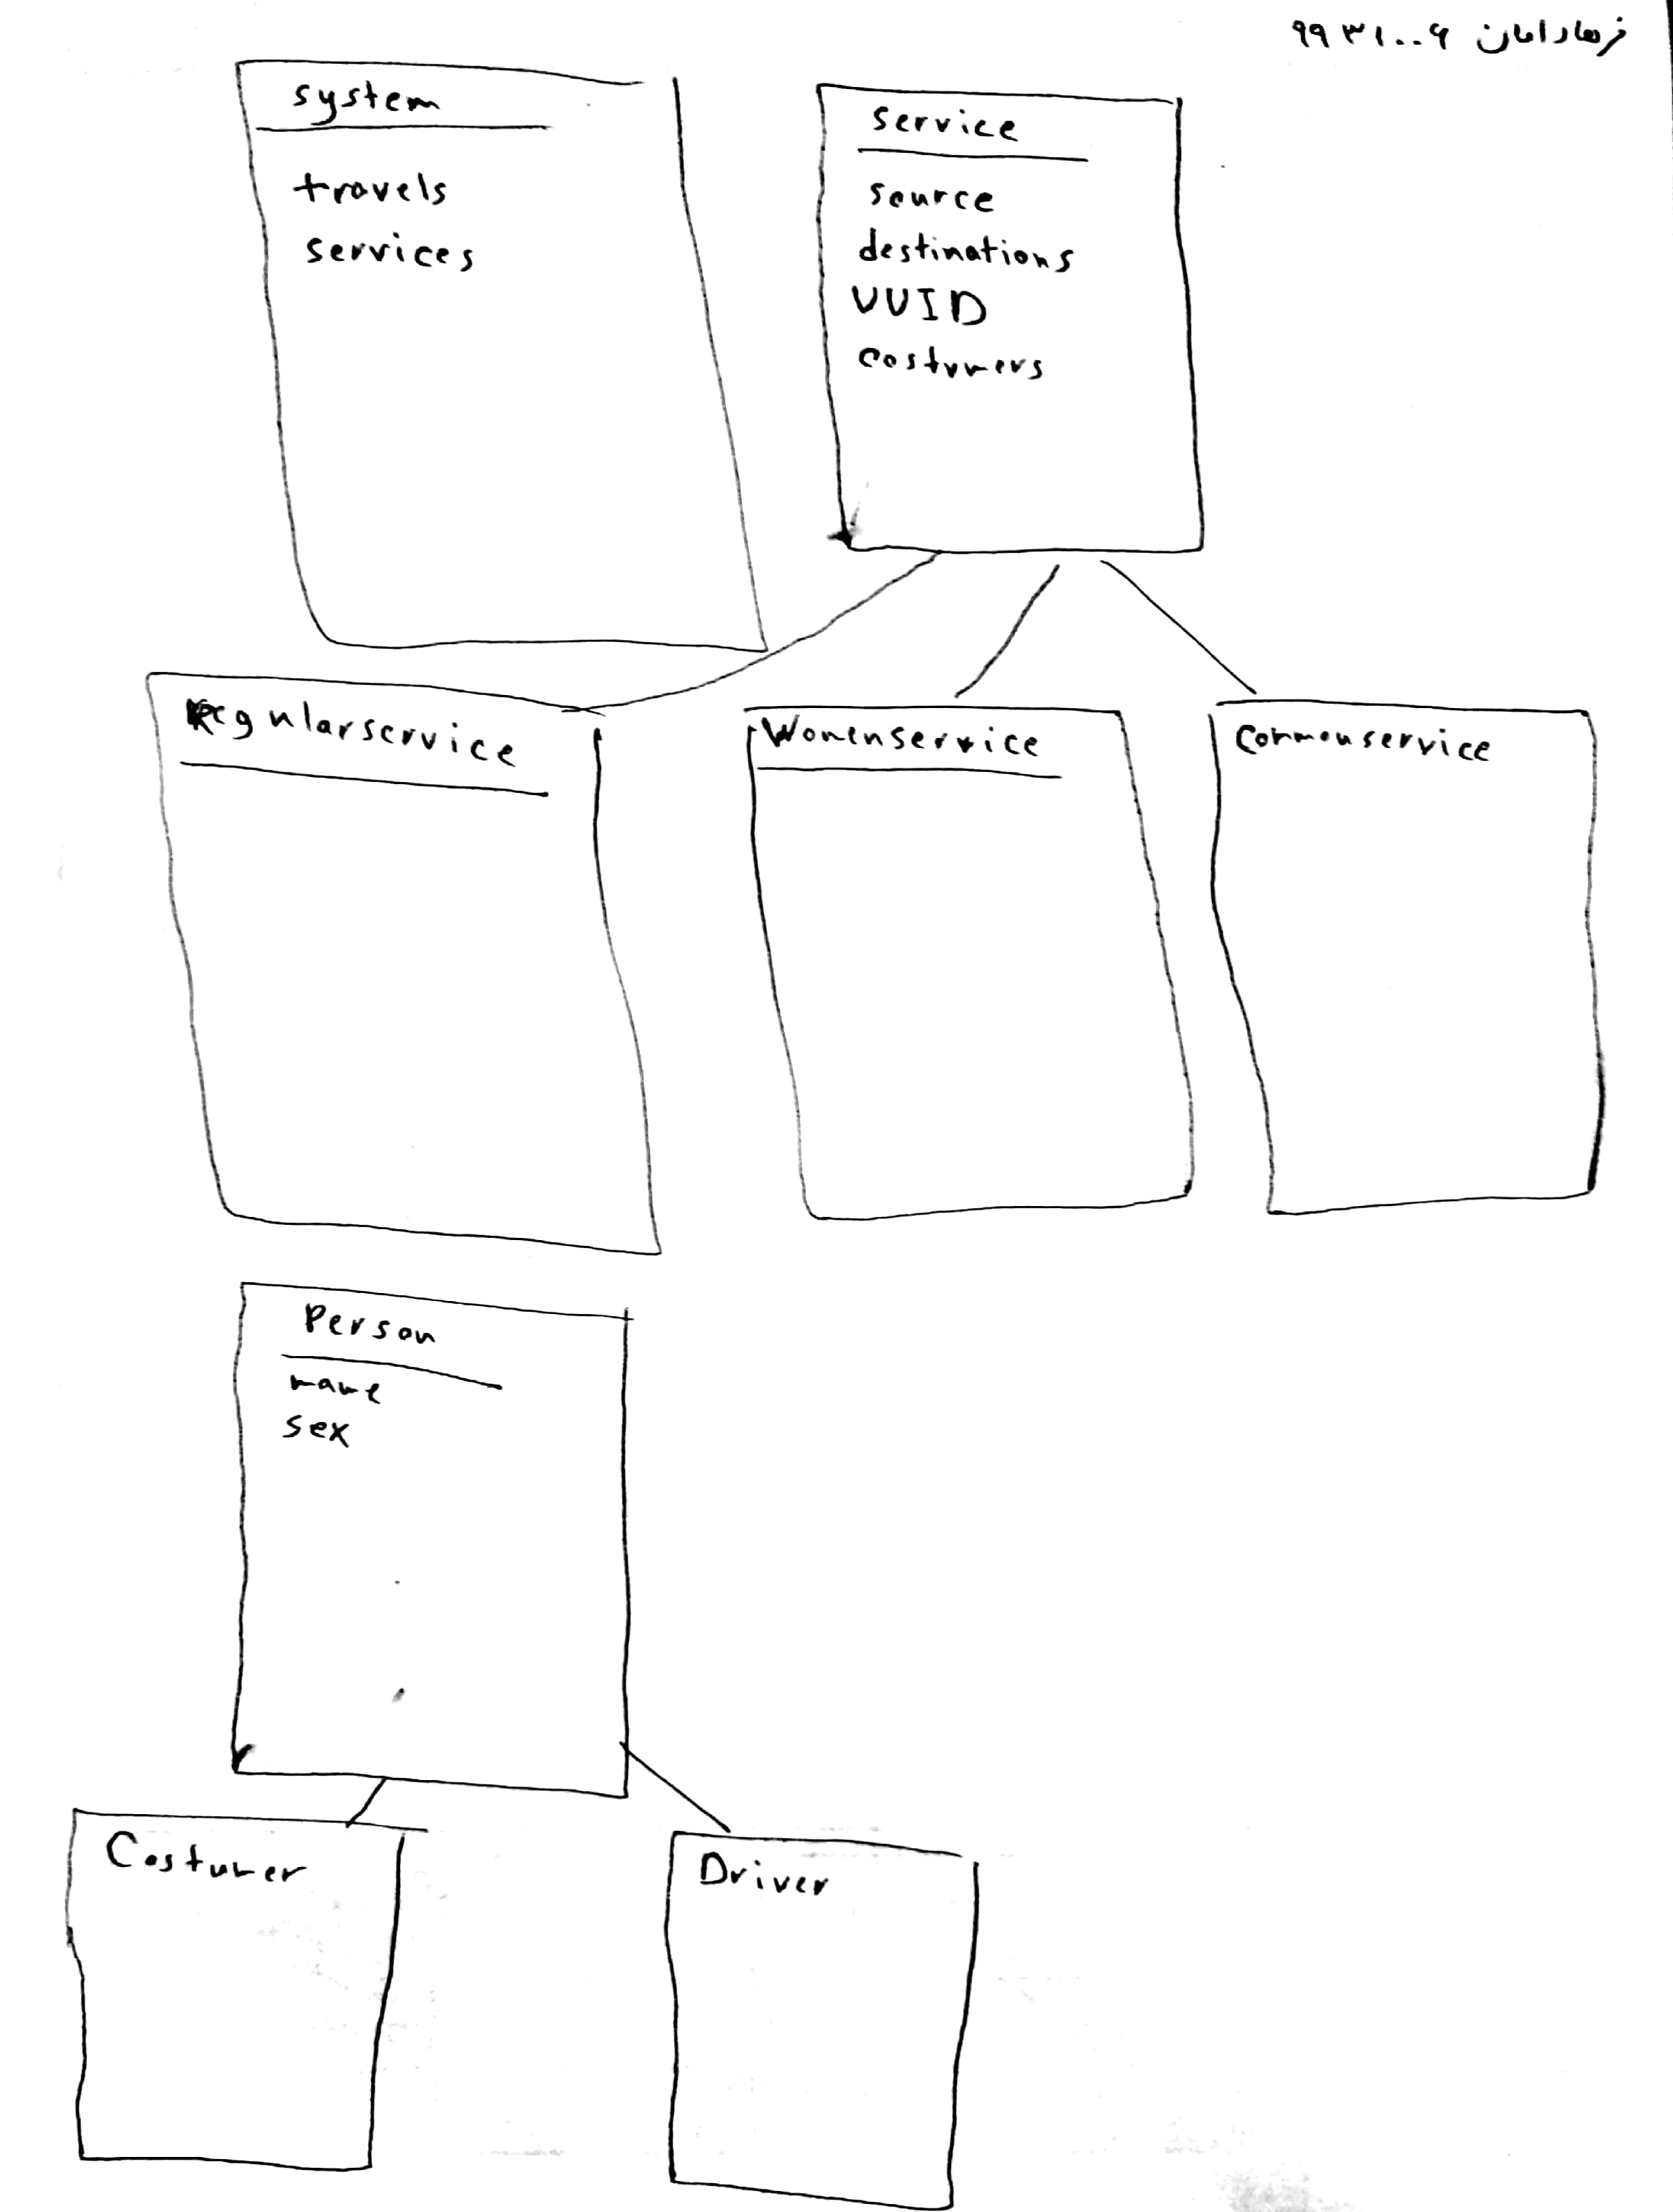 فرهاد امان ۹۹۳۱۰۰۶
system
travels
services
service
source
destinations
UUID
costumers
Regularservice
Womenservice
Commonservice
Person
name
sex
Costumer
Driver